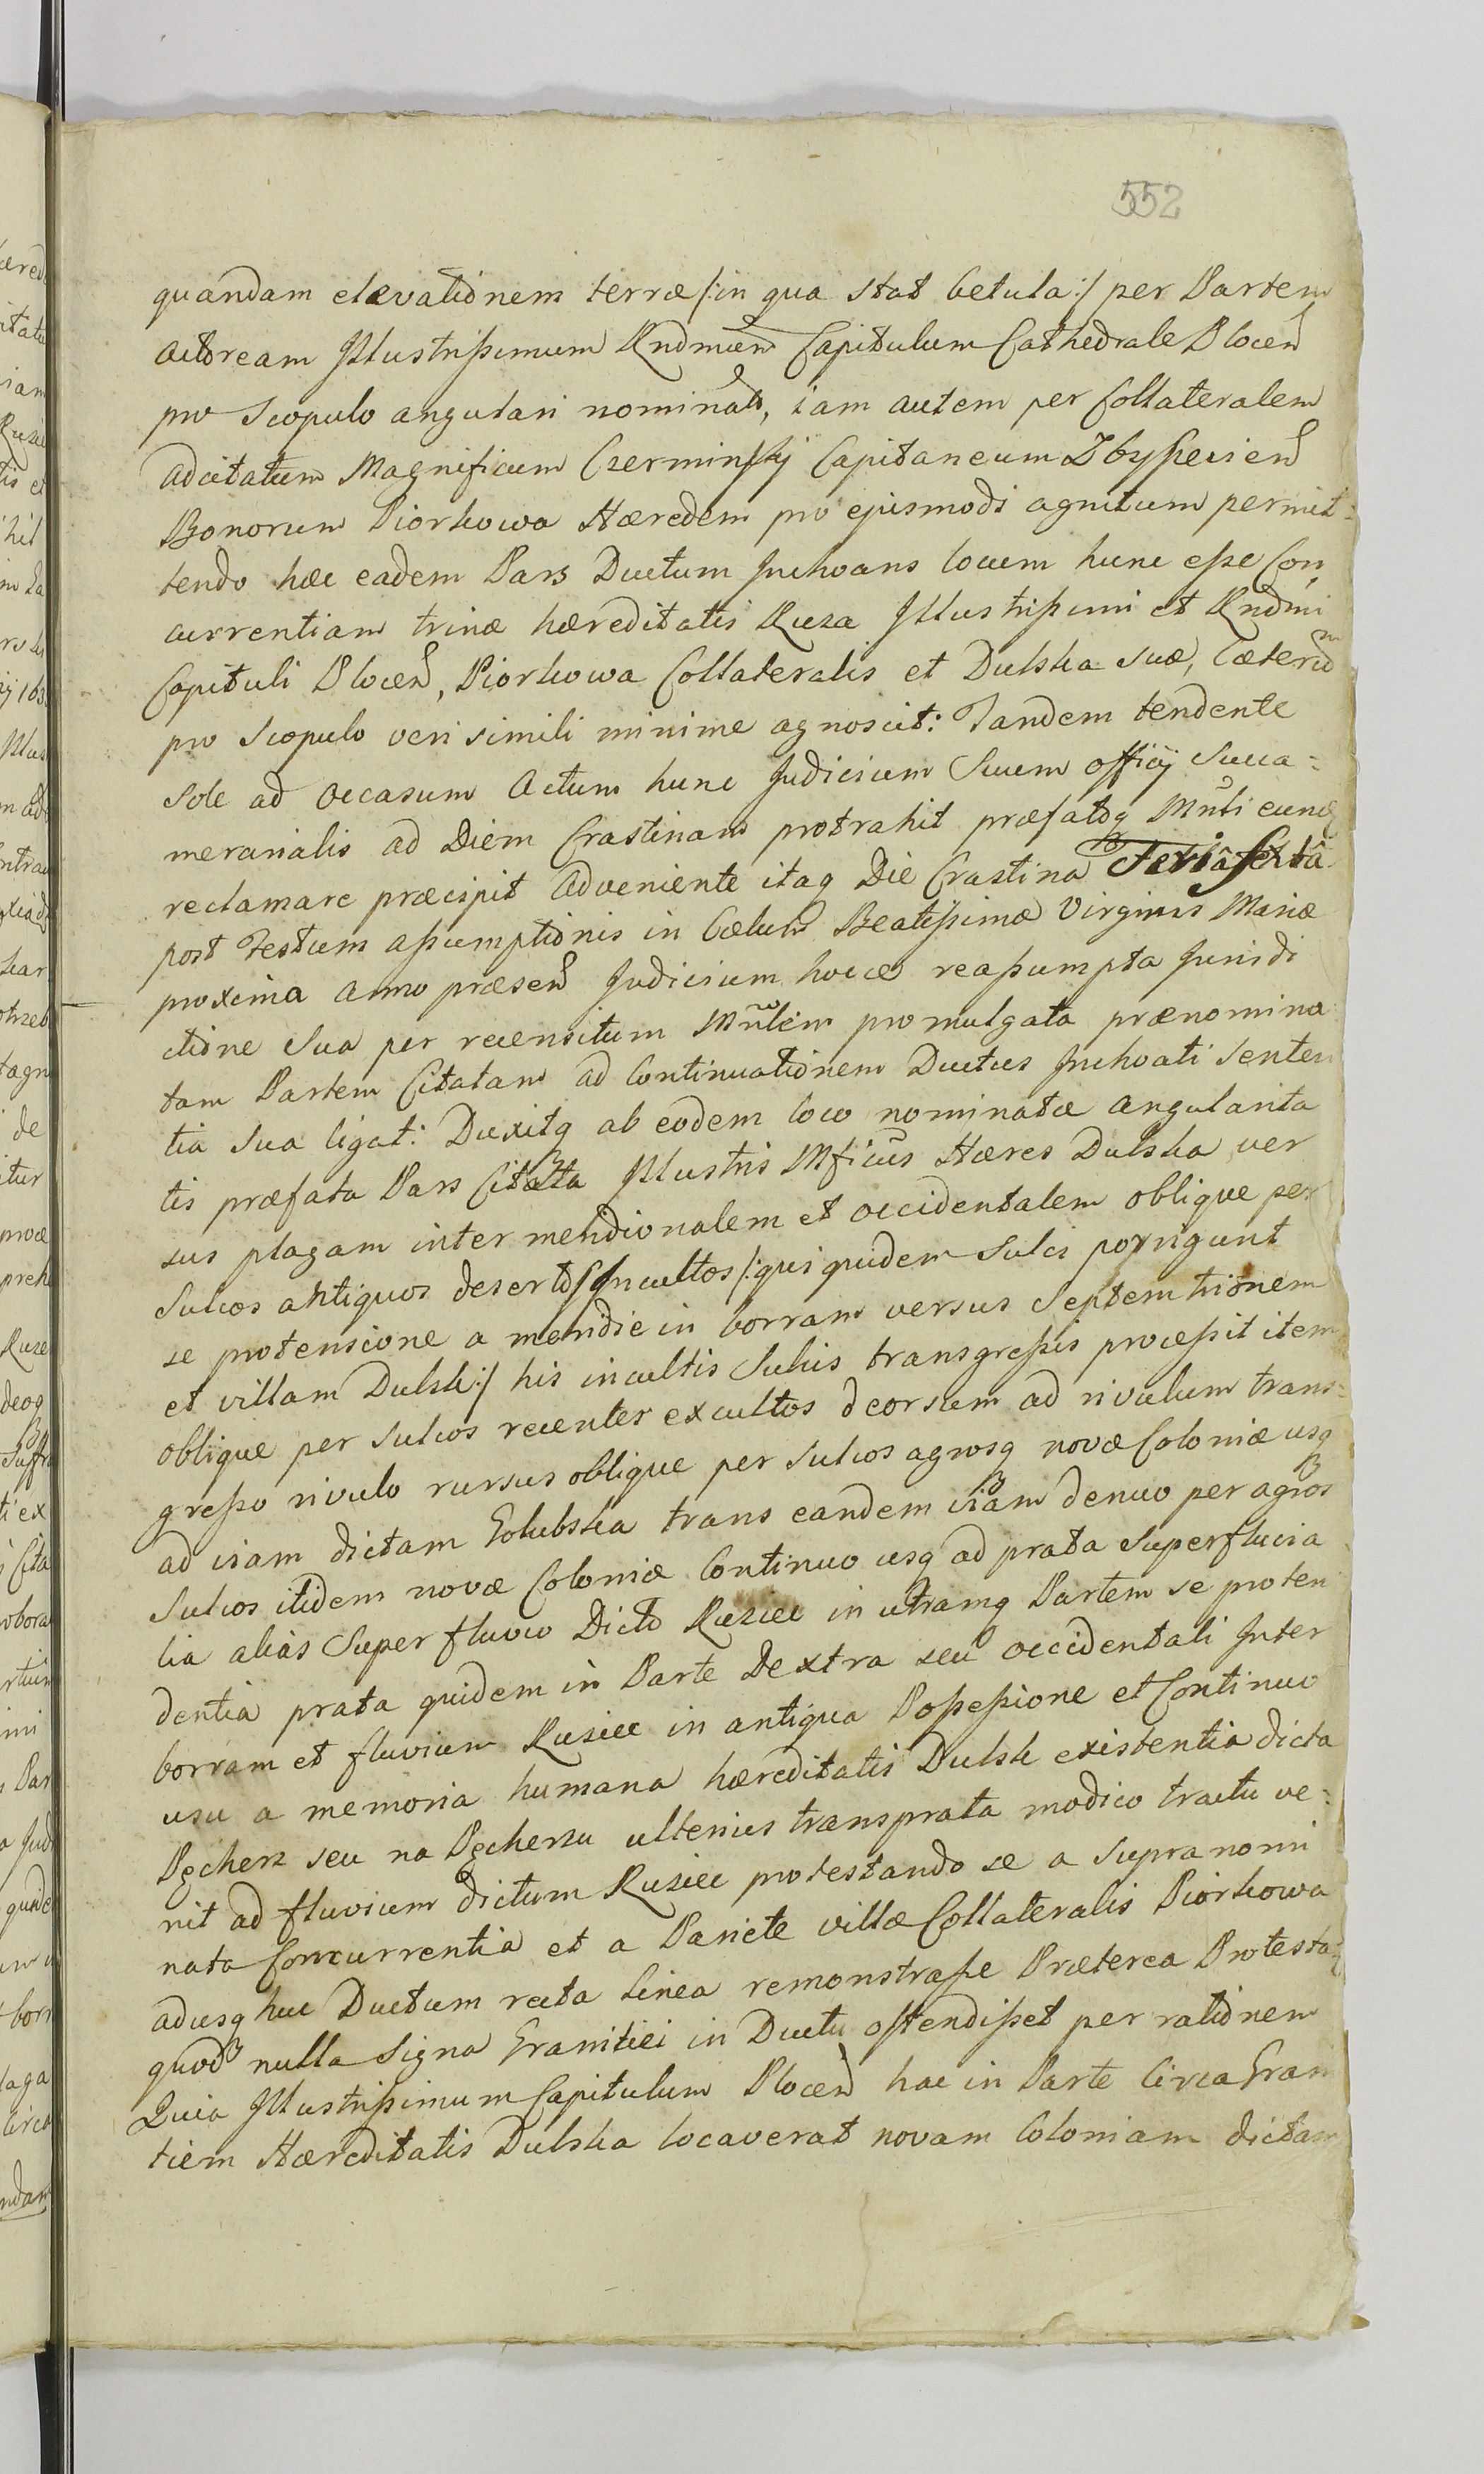 552
quandam elevationem terræ /:in qua stat betula:/ per Partem
actoream Illustrissimum Rndmum Capitulum Cathedrale Plocen
pro Scopulo angulari nominato, iam autem per Collateralem
adcitatum Magnificum Czerminskij Capitaneum Zbyszeien
Bonorum Piorkowa Hæredem pro ejusmodi agnitum permit=
tendo hæc eadem Pars Ductum Inchoans locum hunc esse Con
currentiam trinæ hæreditatis Ruza Illustrissimi et Rndmi
Capituli Plocen, Piorkowa Collateralis et Dulska suæ, Cæterum
pro Scopulo veri simili minime agnoscit: Tandem tendente
Sole ad occasum Actum hunc Judicium Suum officij Succa=
merarialis ad Diem Crastinam protrahit præfatoq Mnlti eunq
reclamare præcipit Adveniente itaq Die Crastina Feriâ Sextâ
post Festum assumptionis in Cælum Beatissimæ Virginis Mariæ
proxima anno præsen Judicium hocce reassumpta Jurisdi
ctione Sua per recensitum Mnlem promulgata prænomina
tam Partem Citatam ad Continuationem Ductus Inchoati Senten
tia Sua ligat: Duxitq ab eodem loco nominatæ angularita
tis præfata Pars Citata Illustris Mficus Hæres Dulska ver
sus plagam inter meridionalem et occidentalem oblique per
Sulcos antiquos deserto Incultos /:qui quidem Sulci porrigunt
se protensione a meridie in borram versus Septemtrionem
et villam Dulsk:/ his incultis Sulcis transgressis processit item
oblique per Sulcos recenter excultos deorsum ad rivulum trans=
gresso rivulo rursus oblique per Sulcos agrosq novæ Coloniæ usq
ad viam dictam Golubska trans eandem viam denuo per agros
Sulcos itidem novæ Coloniæ Continuo usq ad prata Superfluvia
lia alias Super fluvio Dicto Ruziec in utramq Partem se proten
dentia prata quidem in Parte Dextra seu occidentali Inter
borram et fluvium Ruziec in antiqua Possessione et Continuo
usu a memoria humana hæreditatis Dulsk existentia dicta
Pęcherz seu na Pęcherzu ulterius trans prata modico tractu ve=
nit ad fluvium dictum Ruziec protestando se a supra nomi
nata Concurrentia et a Pariete villæ Collateralis Piorkowa
adusq huc Ductum recta Linea remonstrasse Præterea Protesta
quod nulla Signa Granitiei in Ductu ostendisset per rationem
Quia Illustrissimum Capitulum Plocen hac in Parte Circa Grani
tiem Hæreditatis Dulska locaverat novam Coloniam dictam